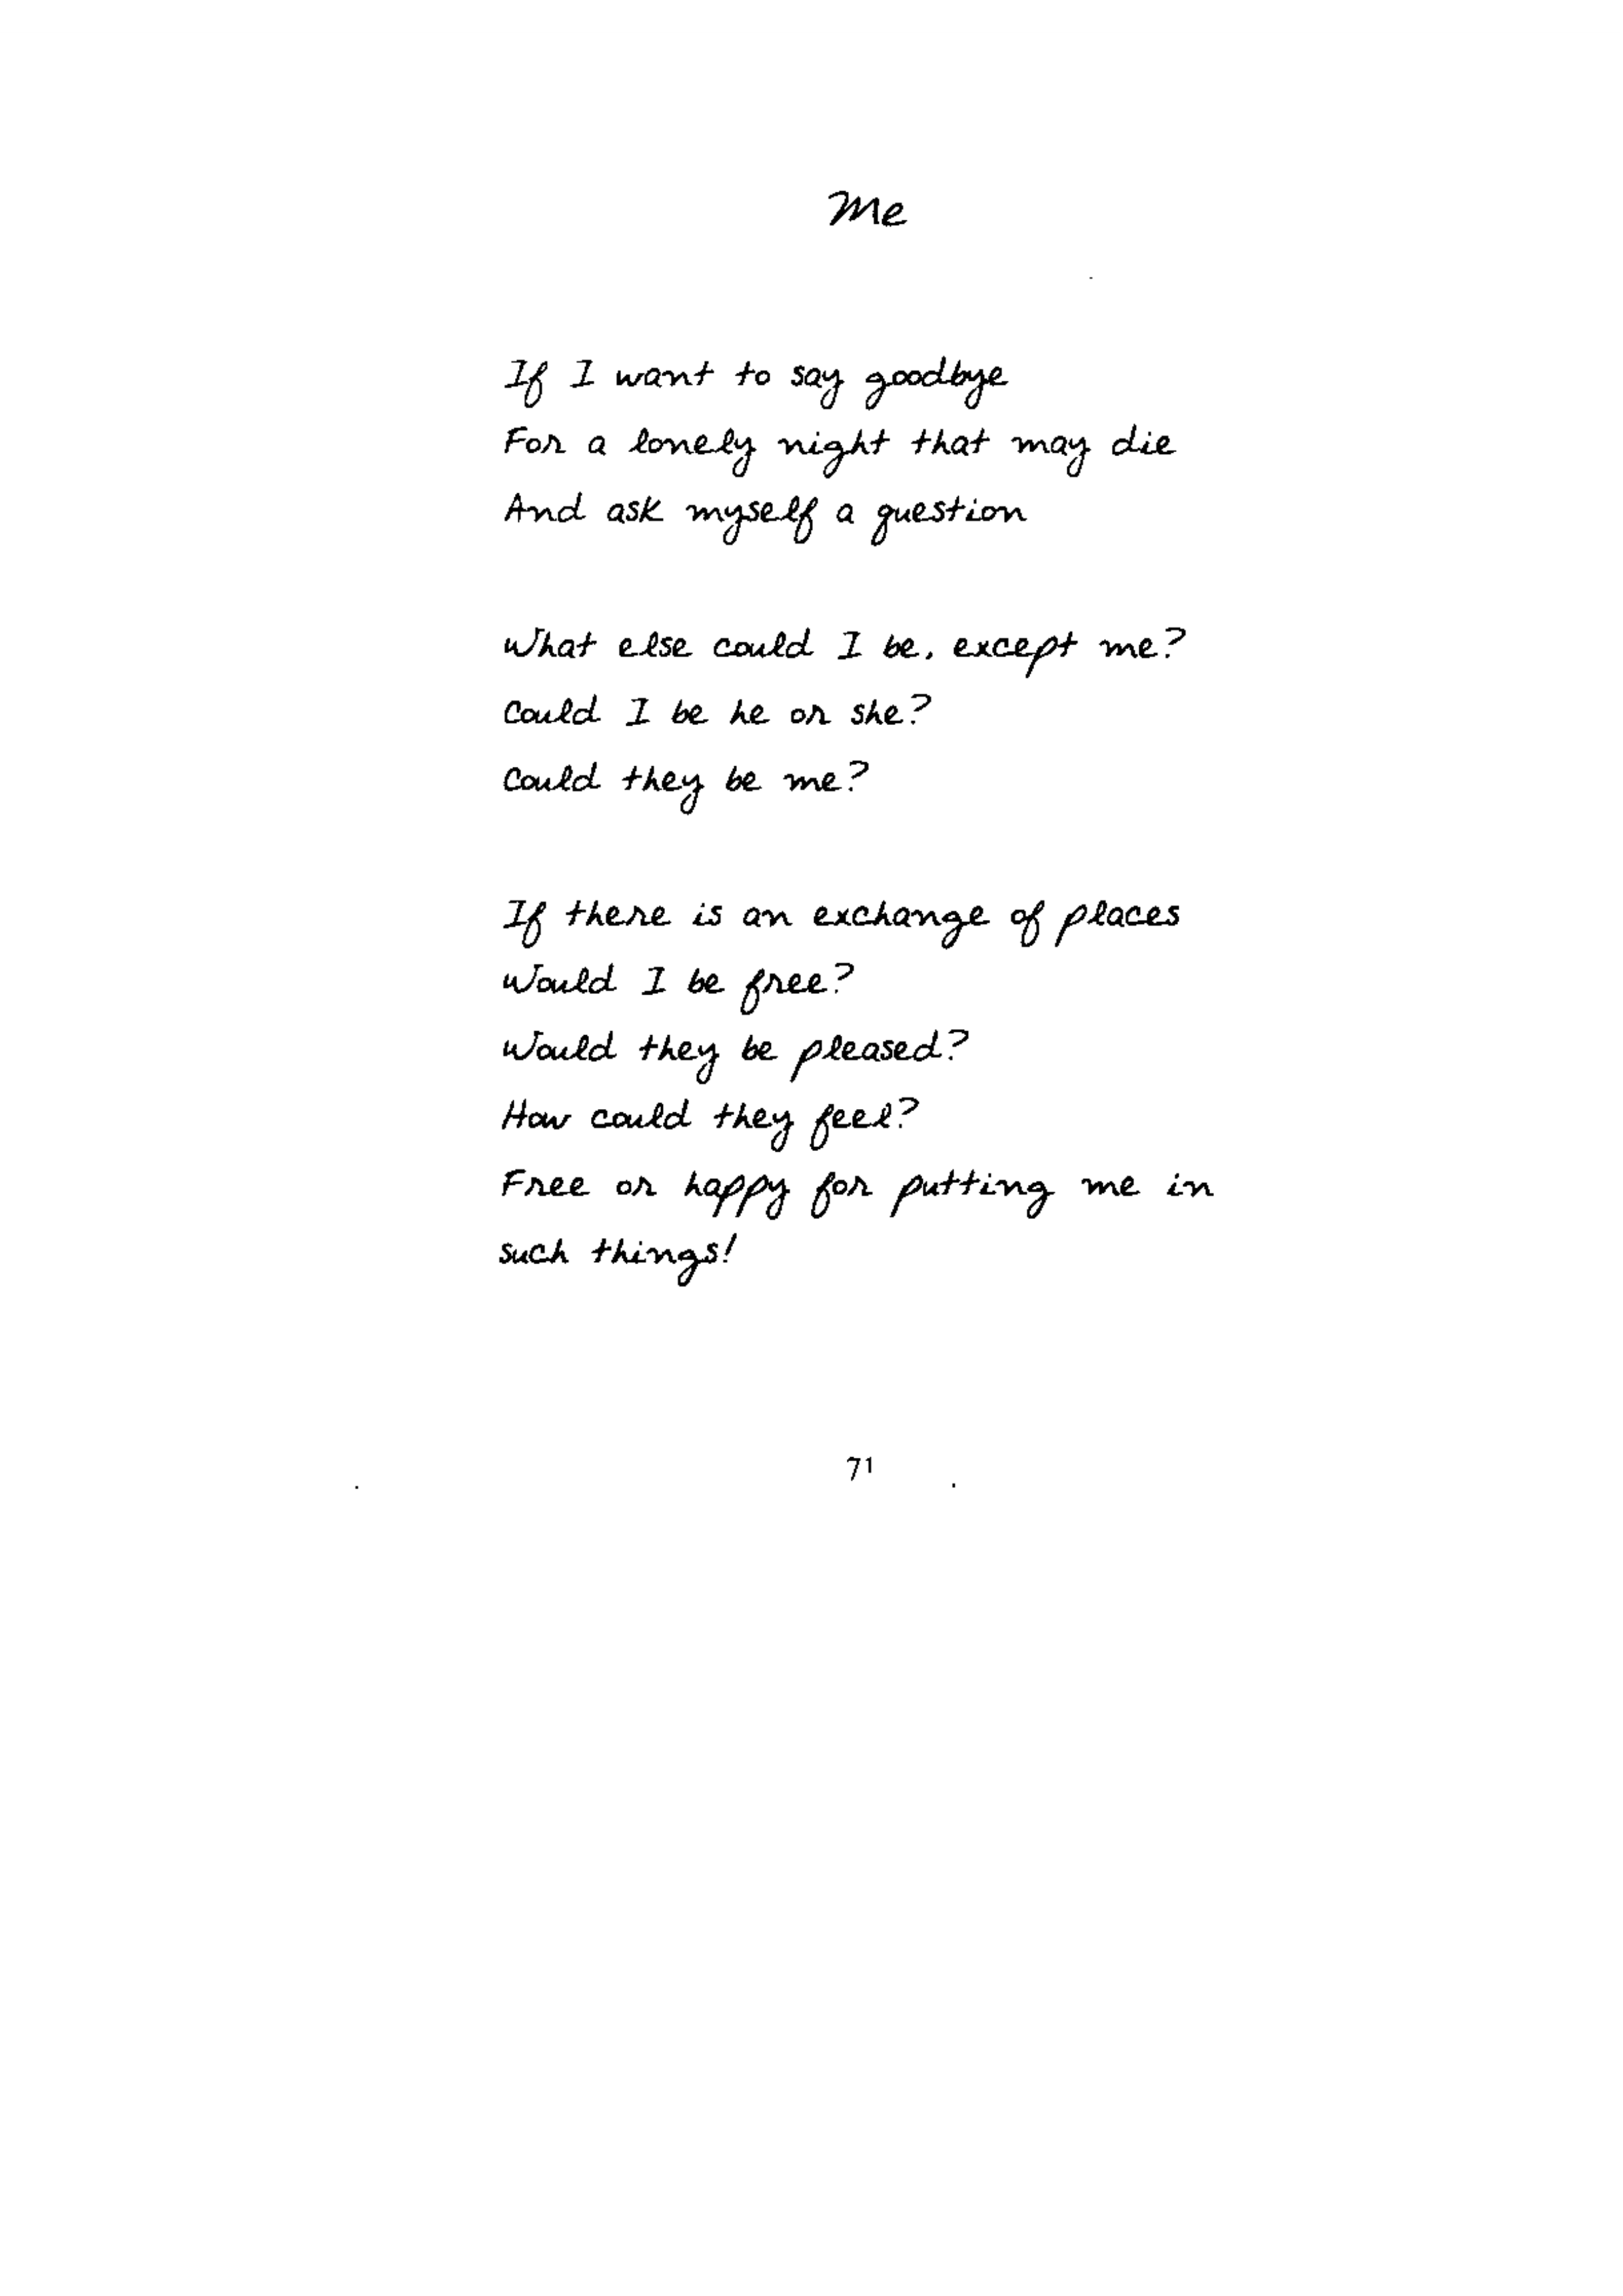 Me
If I want to say goodbye
For a lonely night that may die
And ask myself a question
What else could I be, except me?
Could I be he or she?
Could they be me?
If there is an exchange of places
Would I be free?
Would they be pleased?
How could they feel?
Free or happy for putting me in
such things!
71